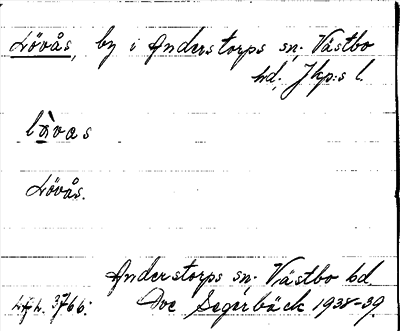 Lövås, by i Anderstorps sn. Västbo
hd. Jkp:s l.
làvas
Lövås.
Anderstorps sn. Västbo hd.
3766. Ove Segerbäck 1938-39.